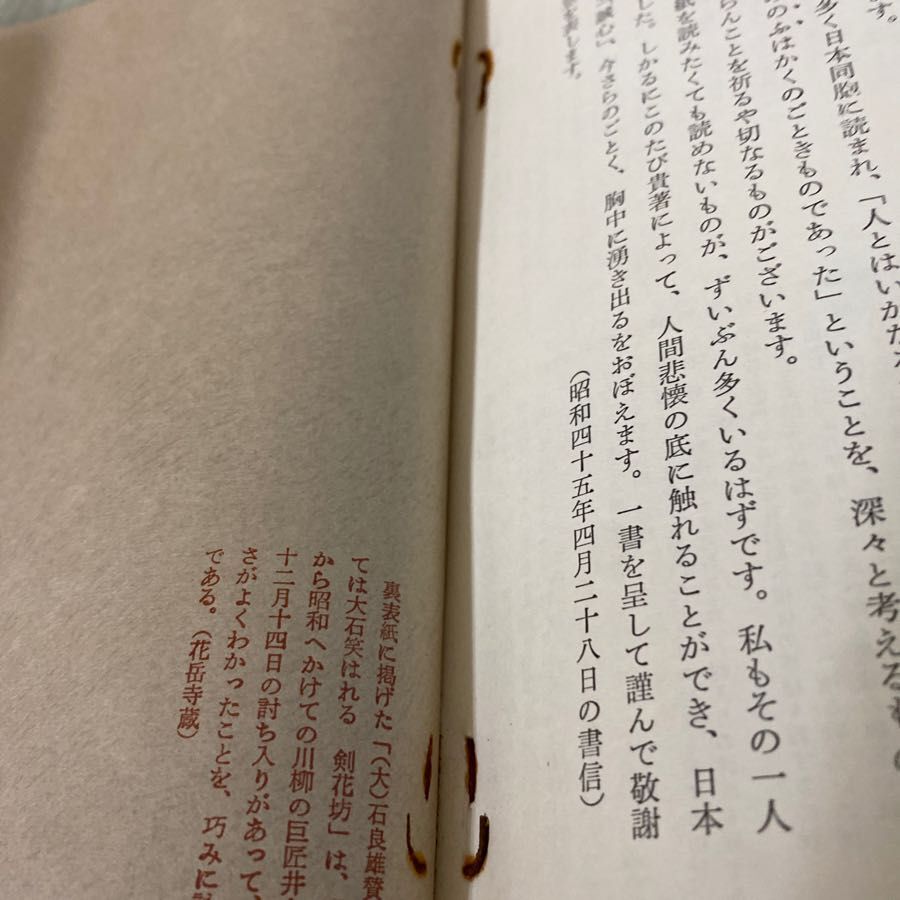 す。
多く日本同胞に読まれ、「人とはいかなる
のふはかくのごときものであった」ということを、深々と考えるもの
らんことを祈るや切なるものがございます。
紙を読みたくても読めないものが、ずいぶん多くいるはずです。私もその一人
した。しかるにこのたび貴著によって、人間悲懐の底に触れることができ、日本
誠心」、今さらのごとく、胸中に湧き出るをおぼえます。一書を呈して謹んで敬謝
を表します。
(昭和四十五年四月二十八日の書信)
裏表紙に掲げた「(大)石良雄賛
ては大石笑はれる 剣花坊」は、
から昭和へかけての川柳の巨匠井
十二月十四日の討ち入りがあって、
さがよくわかったことを、巧みに
である。(花岳寺蔵)